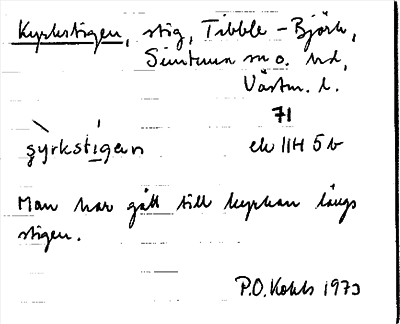 Kyrkstigen, stig, Tibble - Björk,
Simtuna sn o. hd,
Västm. l.
71
çyrkstigan ek 11H 5b
Man har gått till kyrkan längs
stigen.
P.O. Kohls 1973